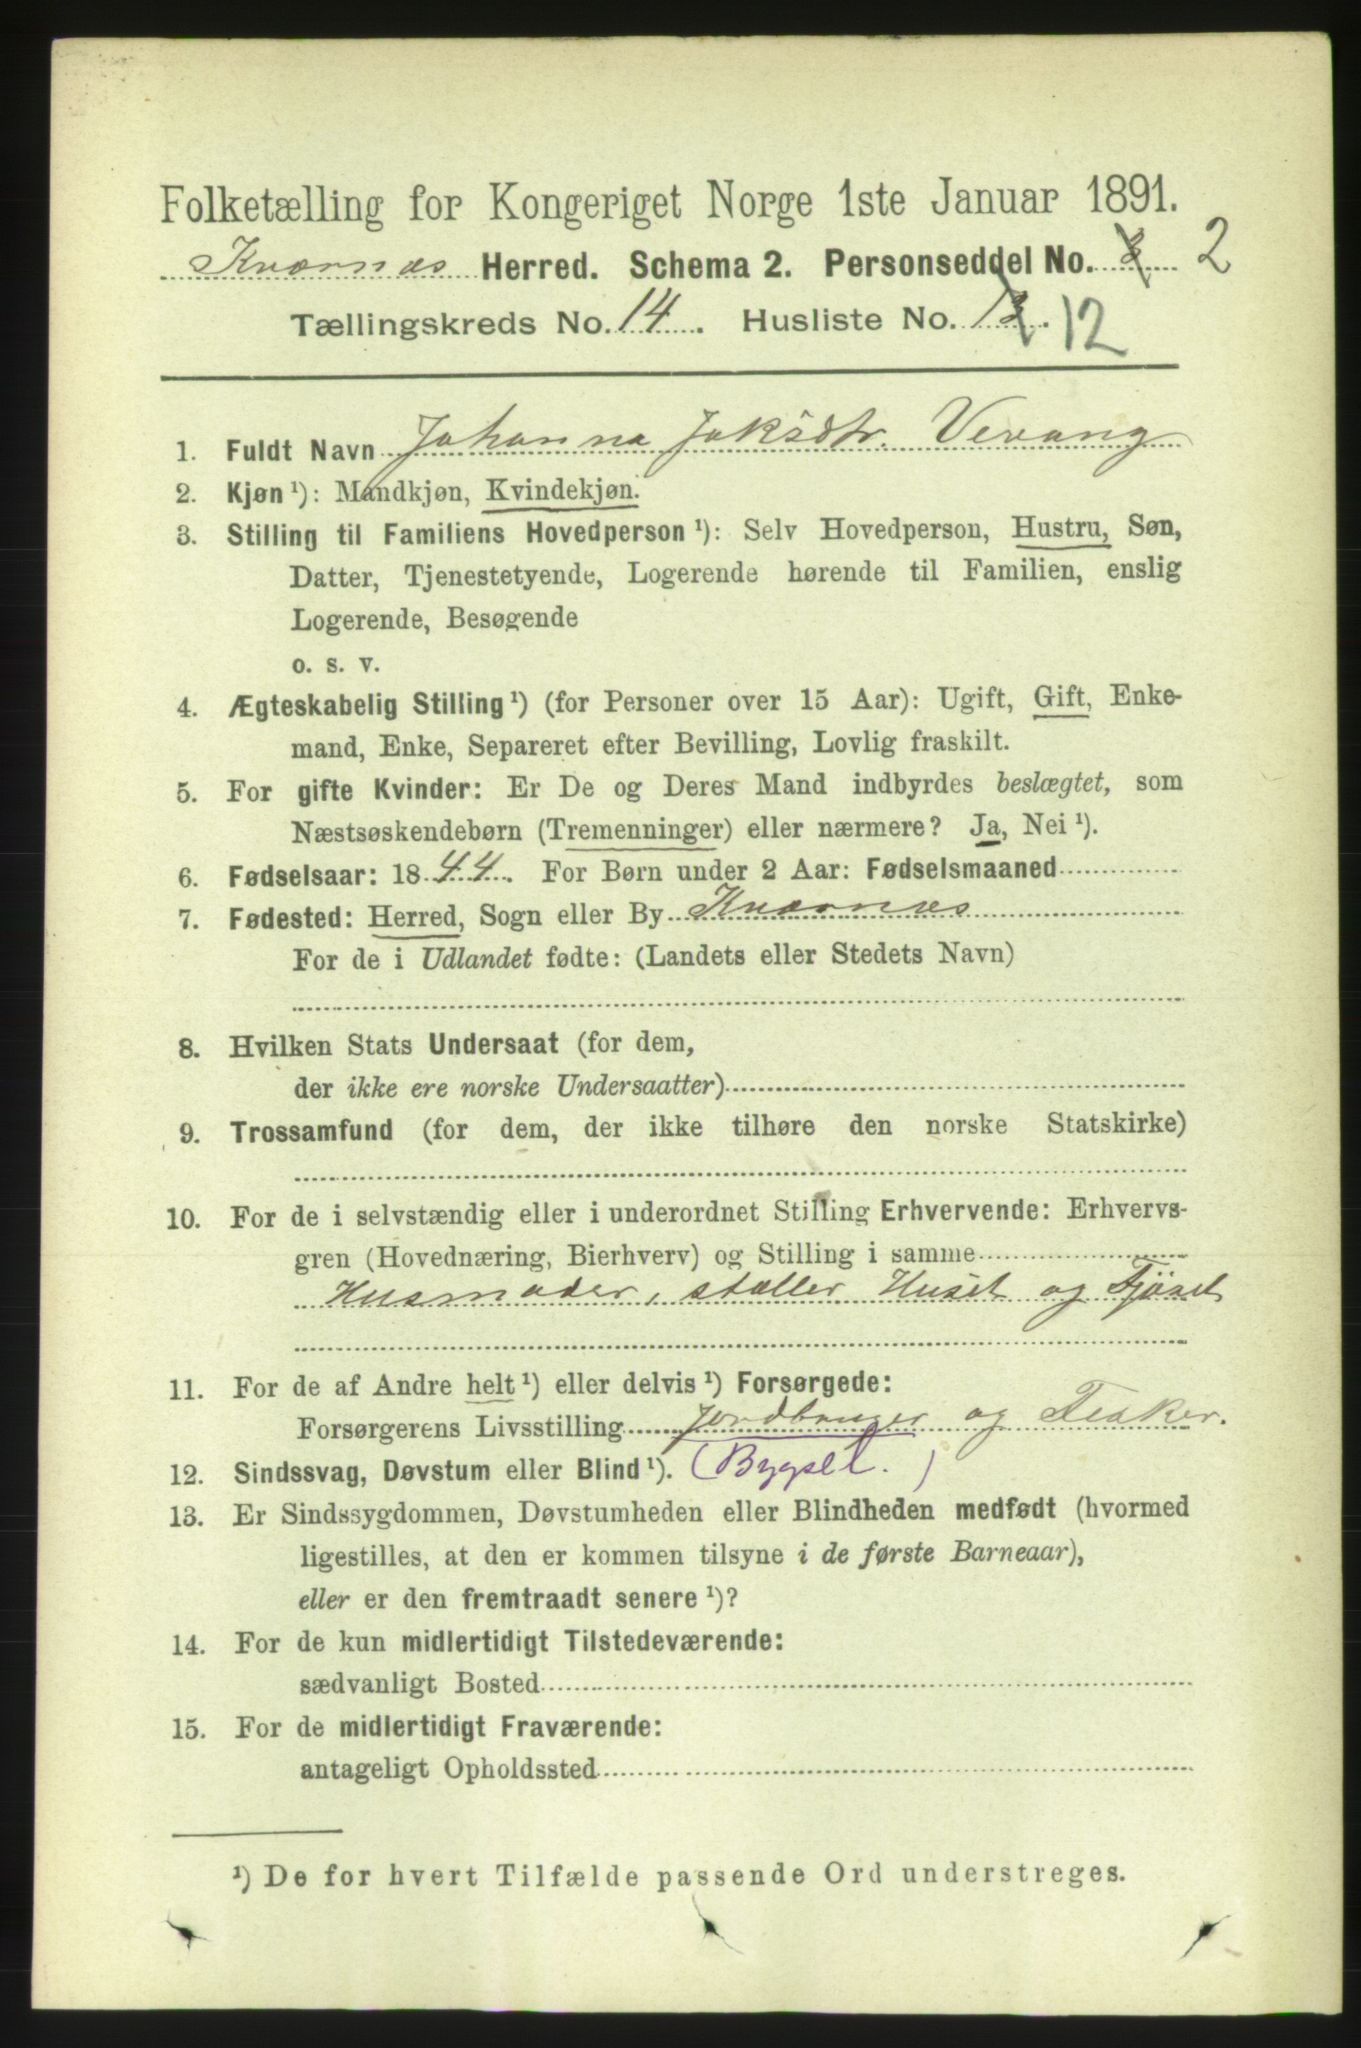 Folketælling for Kongeriget Norge 1ste Januar 1891.
Kværnæs Herred. Schema 2. Personseddel No. 3 2
Tællingskreds No. 14. Husliste No. 13. 12
1. Fuldt Navn Johanna Jaksdtr. Vevang
2. Kjøn ¹): Mandkjøn, Kvindekjøn.
3. Stilling til Familiens Hovedperson ¹): Selv Hovedperson, Hustru, Søn,
Datter, Tjenestetyende, Logerende hørende til Familien, enslig
Logerende, Besøgende
o. s. v.
4. Ægteskabelig Stilling ¹) (for Personer over 15 Aar): Ugift, Gift, Enke-
mand, Enke, Separeret efter Bevilling, Lovlig fraskilt.
5. For gifte Kvinder: Er De og Deres Mand indbyrdes beslægtet, som
Næstsøskendebørn (Tremenninger) eller nærmere? Ja, Nei ¹).
6. Fødselsaar: 1844. For Børn under 2 Aar: Fødselsmaaned
7. Fødested: Herred, Sogn eller By Kværnæs
For de i Udlandet fødte: (Landets eller Stedets Navn)
8. Hvilken Stats Undersaat (for dem,
der ikke ere norske Undersaatter)
9. Trossamfund (for dem, der ikke tilhøre den norske Statskirke)
10. For de i selvstændig eller i underordnet Stilling Erhvervende: Erhvervs-
gren (Hovednæring, Bierhverv) og Stilling i samme
Husmoder, steller Huset og Fjøset
11. For de af Andre helt ¹) eller delvis ¹) Forsørgede:
Forsørgerens Livsstilling Jordbruger og Fisker.
12. Sindssvag, Døvstum eller Blind ¹). (Bygsel.)
13. Er Sindssygdommen, Døvstumheden eller Blindheden medfødt (hvormed
ligestilles, at den er kommen tilsyne i de første Barneaar),
eller er den fremtraadt senere ¹)?
14. For de kun midlertidigt Tilstedeværende:
sædvanligt Bosted
15. For de midlertidigt Fraværende:
antageligt Opholdssted
¹) De for hvert Tilfælde passende Ord understreges.